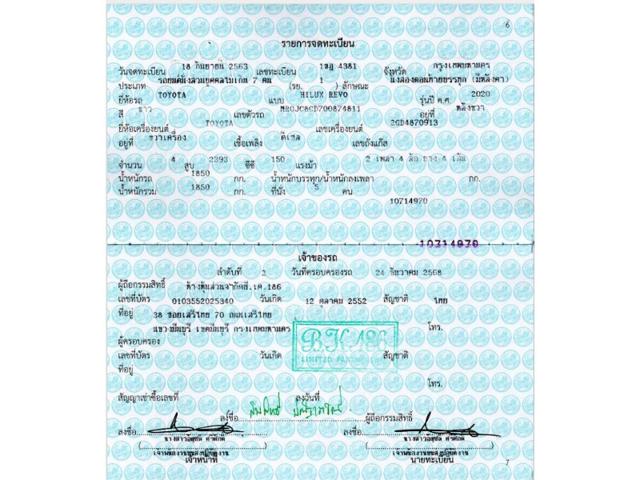 6
รายการจดทะเบียน
วันจดทะเบียน 18 กันยายน 2563 เลขทะเบียน 4381 จังหวัด กรุงเทพมหานคร
ประเภท รถยนต์นั่งส่วนบุคคลไม่เกิน 7 คน (รย. 1 ) ลักษณะ นั่งสองตอนท้ายบรรทุก (มีหลังคา)
ยี่ห้อรถ TOYOTA แบบ HILUX REVO รุ่นปี ค.ศ. 2020
สี ขาว เลขตัวรถ MR0JC8CD700874811 อยู่ที่
ยี่ห้อเครื่องยนต์ TOYOTA เลขเครื่องยนต์ 2GD4870913
อยู่ที่ ขวาเครื่อง เชื้อเพลิง ดีเซล เลขถังแก๊ส
จำนวน 4 สูบ 2393 ซีซี 150 แรงม้า 2 เพลา 4 ล้อ ยาง 4 เส้น
น้ำหนักรถ 1850 กก. น้ำหนักบรรทุก/น้ำหนักลงเพลา กก.
น้ำหนักรวม 1850 กก. ที่นั่ง 5 คน
10714970
10714970
เจ้าของรถ
ลำดับที่ 2 วันที่ครอบครองรถ 24 ธันวาคม 2568
ผู้ถือกรรมสิทธิ์ ห้างหุ้นส่วนจำกัดบี.เค.186
เลขที่บัตร 0103552025340 วันเกิด 12 ตุลาคม 2552 สัญชาติ ไทย
ที่อยู่ 38 ซอยเสรีไทย 70 ถนนเสรีไทย
แขวงมีนบุรี เขตมีนบุรี กรุงเทพมหานคร โทร.
ผู้ครอบครอง
เลขที่บัตร วันเกิด สัญชาติ
ที่อยู่
โทร.
LIMITED PARTNERSHIP
สัญญาเช่าซื้อเลขที่ ลงวันที่
ลงชื่อ ผู้ถือกรรมสิทธิ์
ลงชื่อ ลงชื่อ
เจ้าหน้าที่ นายทะเบียน
7